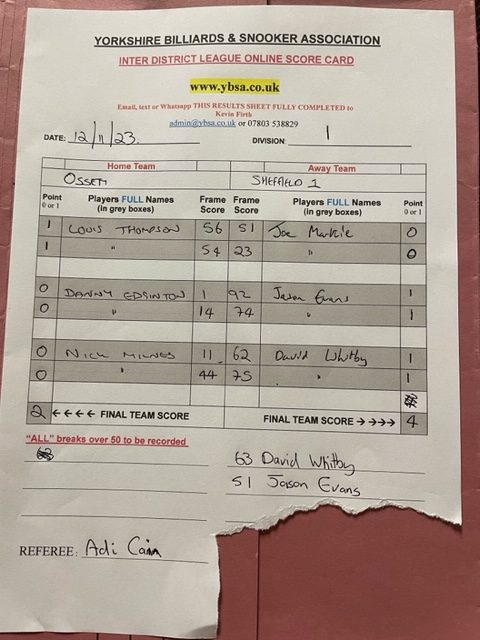 YORKSHIRE BILLIARDS & SNOOKER ASSOCIATION
INTER DISTRICT LEAGUE ONLINE SCORE CARD
www.ybsa.co.uk
Email, text or Whatsapp THIS RESULTS SHEET FULLY COMPLETED to
Kevin Firth
admin@ybsa.co.uk or 07803 538829
DATE: 12/11/23. DIVISION: 1
Home Team Away Team
OSSETT SHEFFIELD 1
Point 0 or 1 Players FULL Names (in grey boxes) Frame Score Frame Score Players FULL Names (in grey boxes) Point 0 or 1
1 LOUIS THOMPSON 56 51 Joe Markie 0
1 " 54 23 " 0
0 DANNY EDSINTON 1 92 Jason Evans 1
0 " 14 74 " 1
0 NICK MILNES 11 62 David Whitby 1
0 " 44 75 " 1
2 ←←←← FINAL TEAM SCORE FINAL TEAM SCORE →→→→ 4
"ALL" breaks over 50 to be recorded
63 David Whitby
51 Jason Evans
REFEREE: Adi Cain